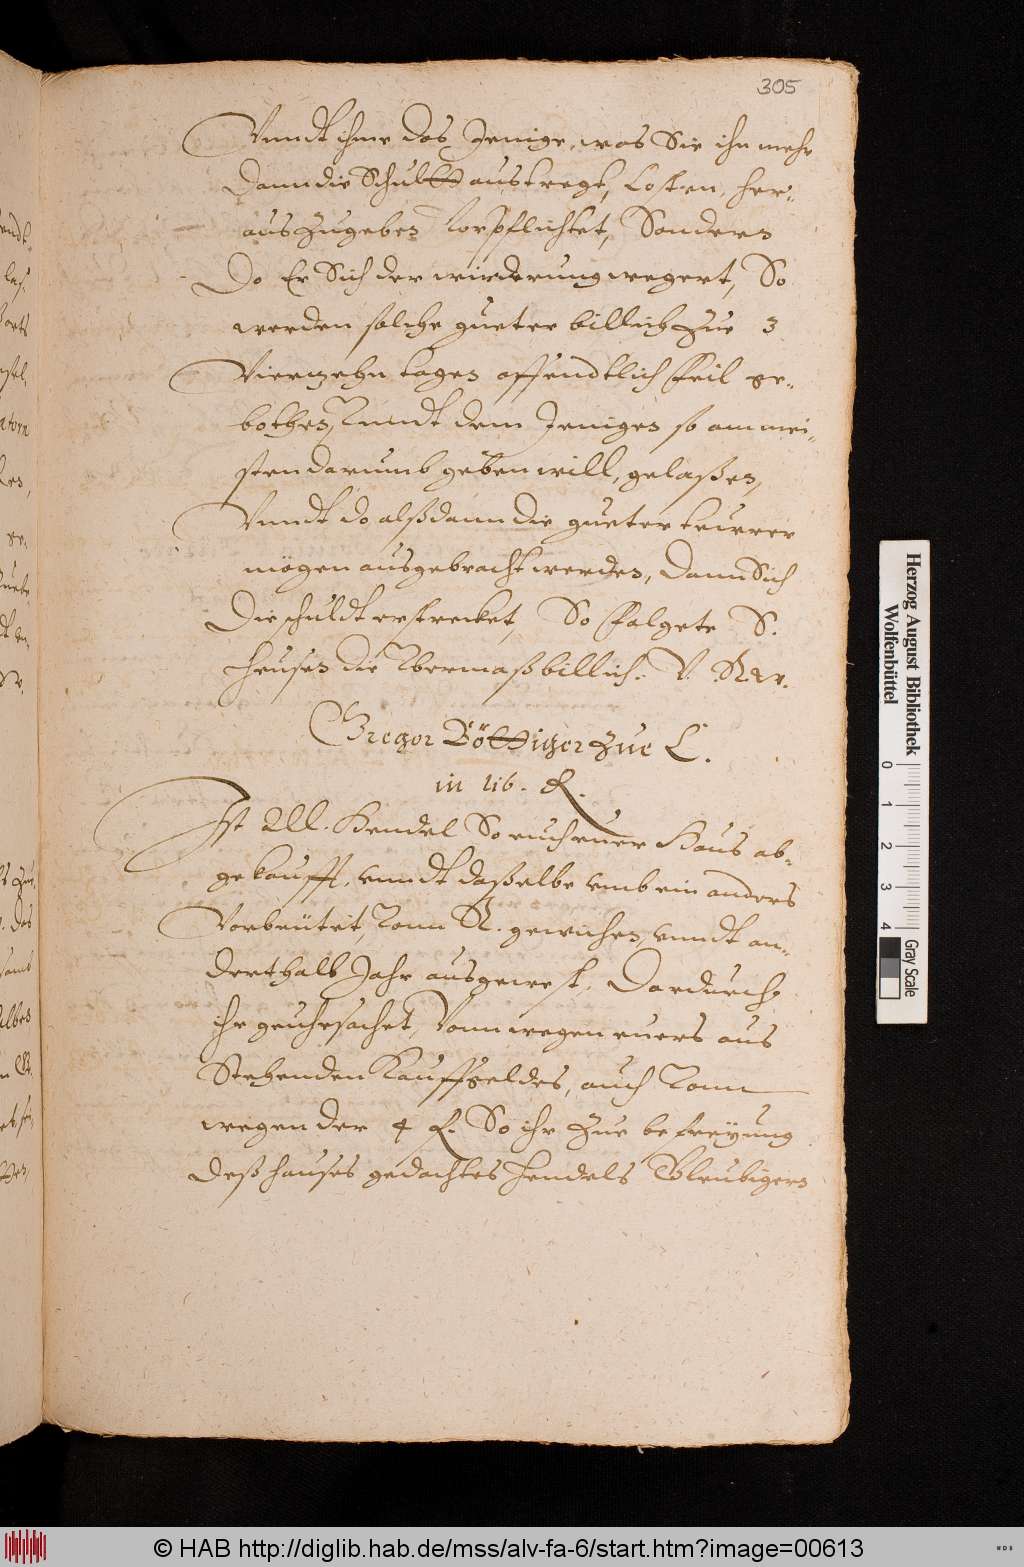 305
Vnndt ihme das Jenige, was Sie ihn mehr
Dann die Schuldt austregt, Costen, her¬
aus Zugeben Vorpflichtet, Sondern
Do Er Sich der wirderung wegert, So
werden solche gueter billich Zue 3
Vierzehn tagen offendtlich Feil ge¬
bothen, Vnndt dem Jenigen so am mei¬
sten darumb geben will, gelaßen,
Vnndt do alßdann die gueter teurrer
mögen ausgebracht werden, Dann Sich
Die schuldt erstrecket, So Folgete S.
Heusen die Vbermaß billich. V. R. w.
Gregor Böttiger Zue L.
in lib. R.
Ist M. Hendel So euch euer Haus ab¬
gekaufft, vnndt daßelbe vmb ein anders
Vorbeütet, Vonn R. gewichen, vnndt an¬
derthalb Jahr ausgewest, Dardurch
ihr geuhrsachet, Vonn wegen euers aus
Stehenden Kauffgeldes, auch Vonn
wegen der 4 f. So ihr Zue befreyung
deß hauses gedachtes Hendels Gleubigern
Herzog August Bibliothek
Wolfenbüttel
0 1 2 3 4
Gray Scale
© HAB http://diglib.hab.de/mss/alv-fa-6/start.htm?image=00613